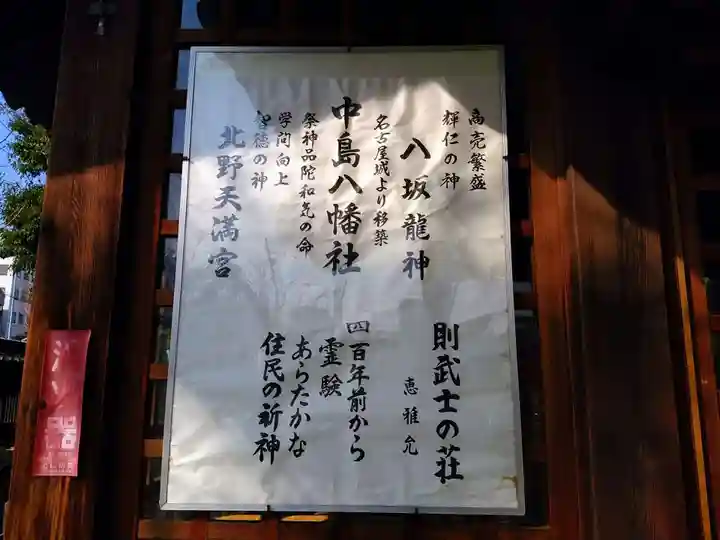 商売繁盛
輝仁の神
八坂龍神
名古屋城より移築
中島八幡社
祭神品陀和気の命
学問向上
智徳の神
北野天満宮
則武士の荘
恵雅允
四百年前から
霊験
あらたかな
住民の祈神